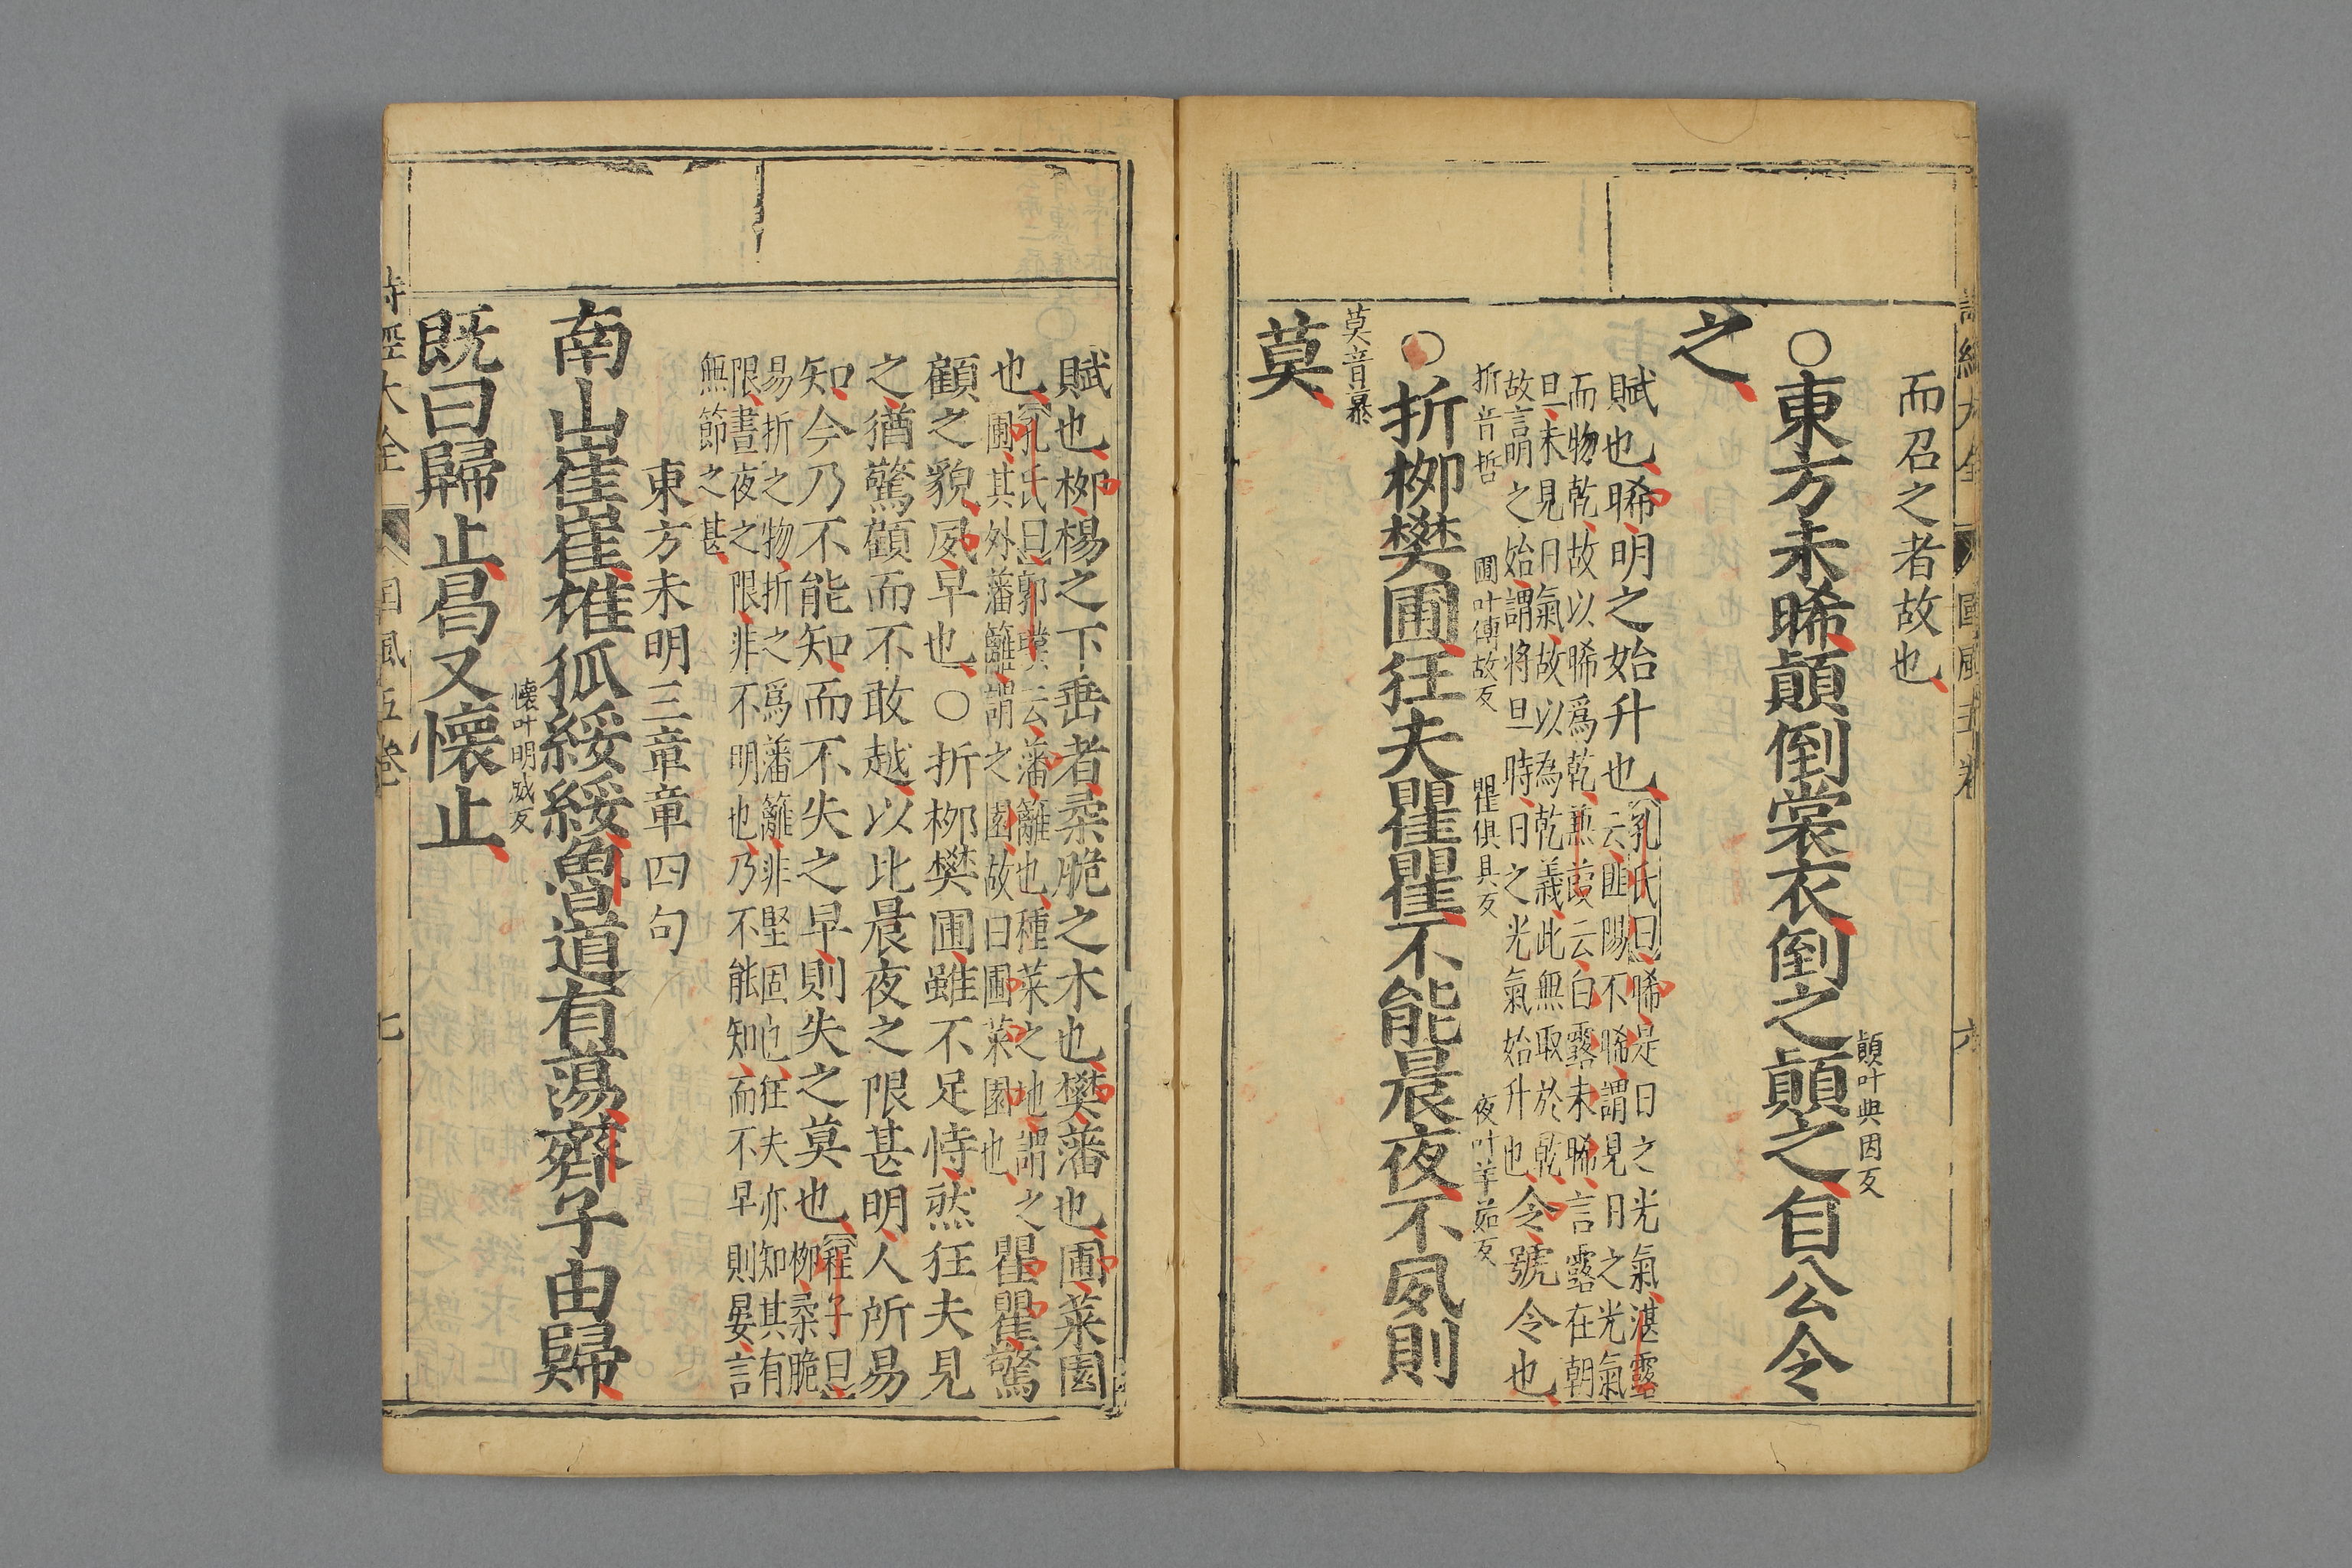 而召之者故也
○東方未晞顛倒裳衣倒之顛之自公令
顛叶典因反
之
賦也晞明之始升也
孔氏曰晞是日之光氣湛露
云匪陽不晞謂見日之光氣
而物乾故以晞爲乾蒹葭云白露未晞言露在朝
旦未見日氣故以為乾義此無取於乾
故言明之始謂將旦時日之光氣始升也
令號令也
折音哲
圃叶博故反
瞿俱具反
夜叶羊茹反
○折栁樊圃狂夫瞿瞿不能晨夜不夙則
莫音暴
莫
賦也栁楊之下垂者柔脆之木也樊藩也圃菜園
也
孔氏曰郭璞云藩籬也種菜之地謂之
圃其外藩籬謂之園故曰圃菜園也
瞿瞿驚
顧之貌夙早也○折栁樊圃雖不足恃然狂夫見
之猶驚顧而不敢越以比晨夜之限甚明人所易
知今乃不能知而不失之早則失之莫也
程子曰
栁柔脆
易折之物折之爲藩籬非堅固也狂夫亦知其有
限晝夜之限非不明也乃不能知而不早則晏言
無節之甚
東方未明三章章四句
南山崔崔雄狐綏綏魯道有蕩齊子由歸
懐叶胡威反
既曰歸止曷又懐止
詩經大全
國風五卷
七